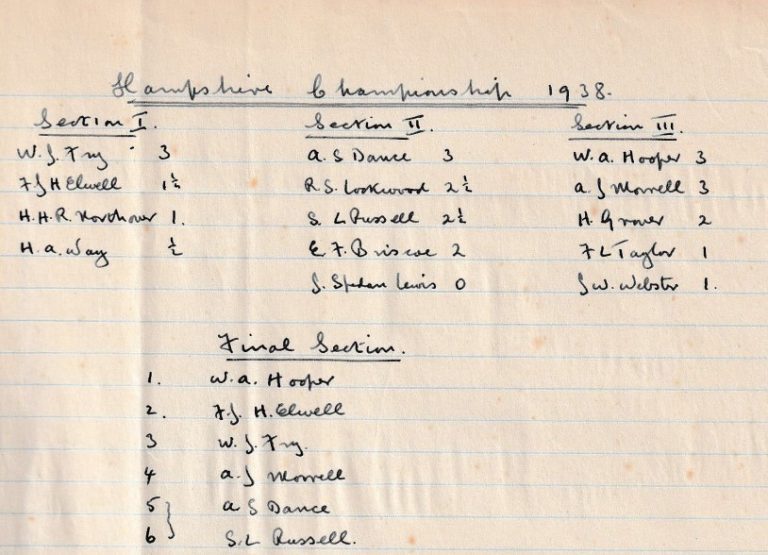 Hampshire Championship 1938.
Section I. Section II. Section III.
W. J. Fry 3 A. S Dance 3 W. A. Hooper 3
F J H Elwell 1½ R S. Lockwood 2½ A. J Morrell 3
H. H. R. Northover 1. S. L Russell 2½ H. Grover 2
H. A. Way ½ E. F. Briscoe 2 F L Taylor 1
J. Spedan Lewis 0 J W. Webster 1.
Final Section.
1. W. A. Hooper
2. F. J. H. Elwell
3 W. J. Fry.
4 A. J Morrell
5 A S Dance
6 S. L Russell.